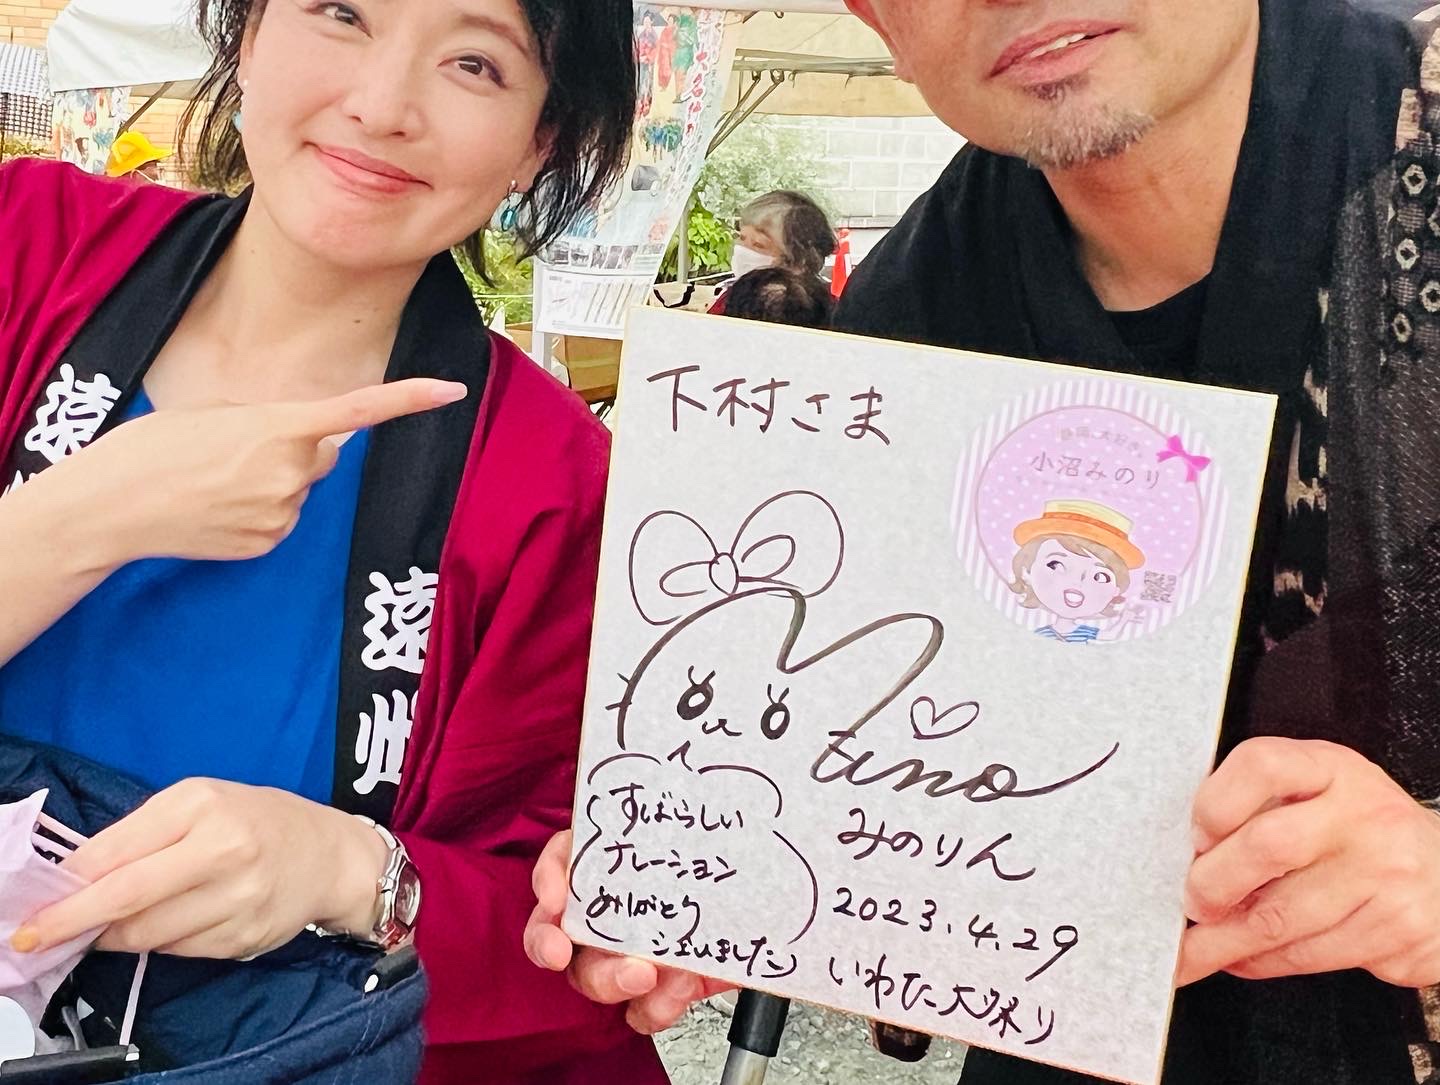 遠州
遠州
下村さま
静岡、大好き。
小沼みのり
Mino
すばらしい
ナレーション
ありがとう
ございました
みのりん
2023.4.29
いわた大祭り